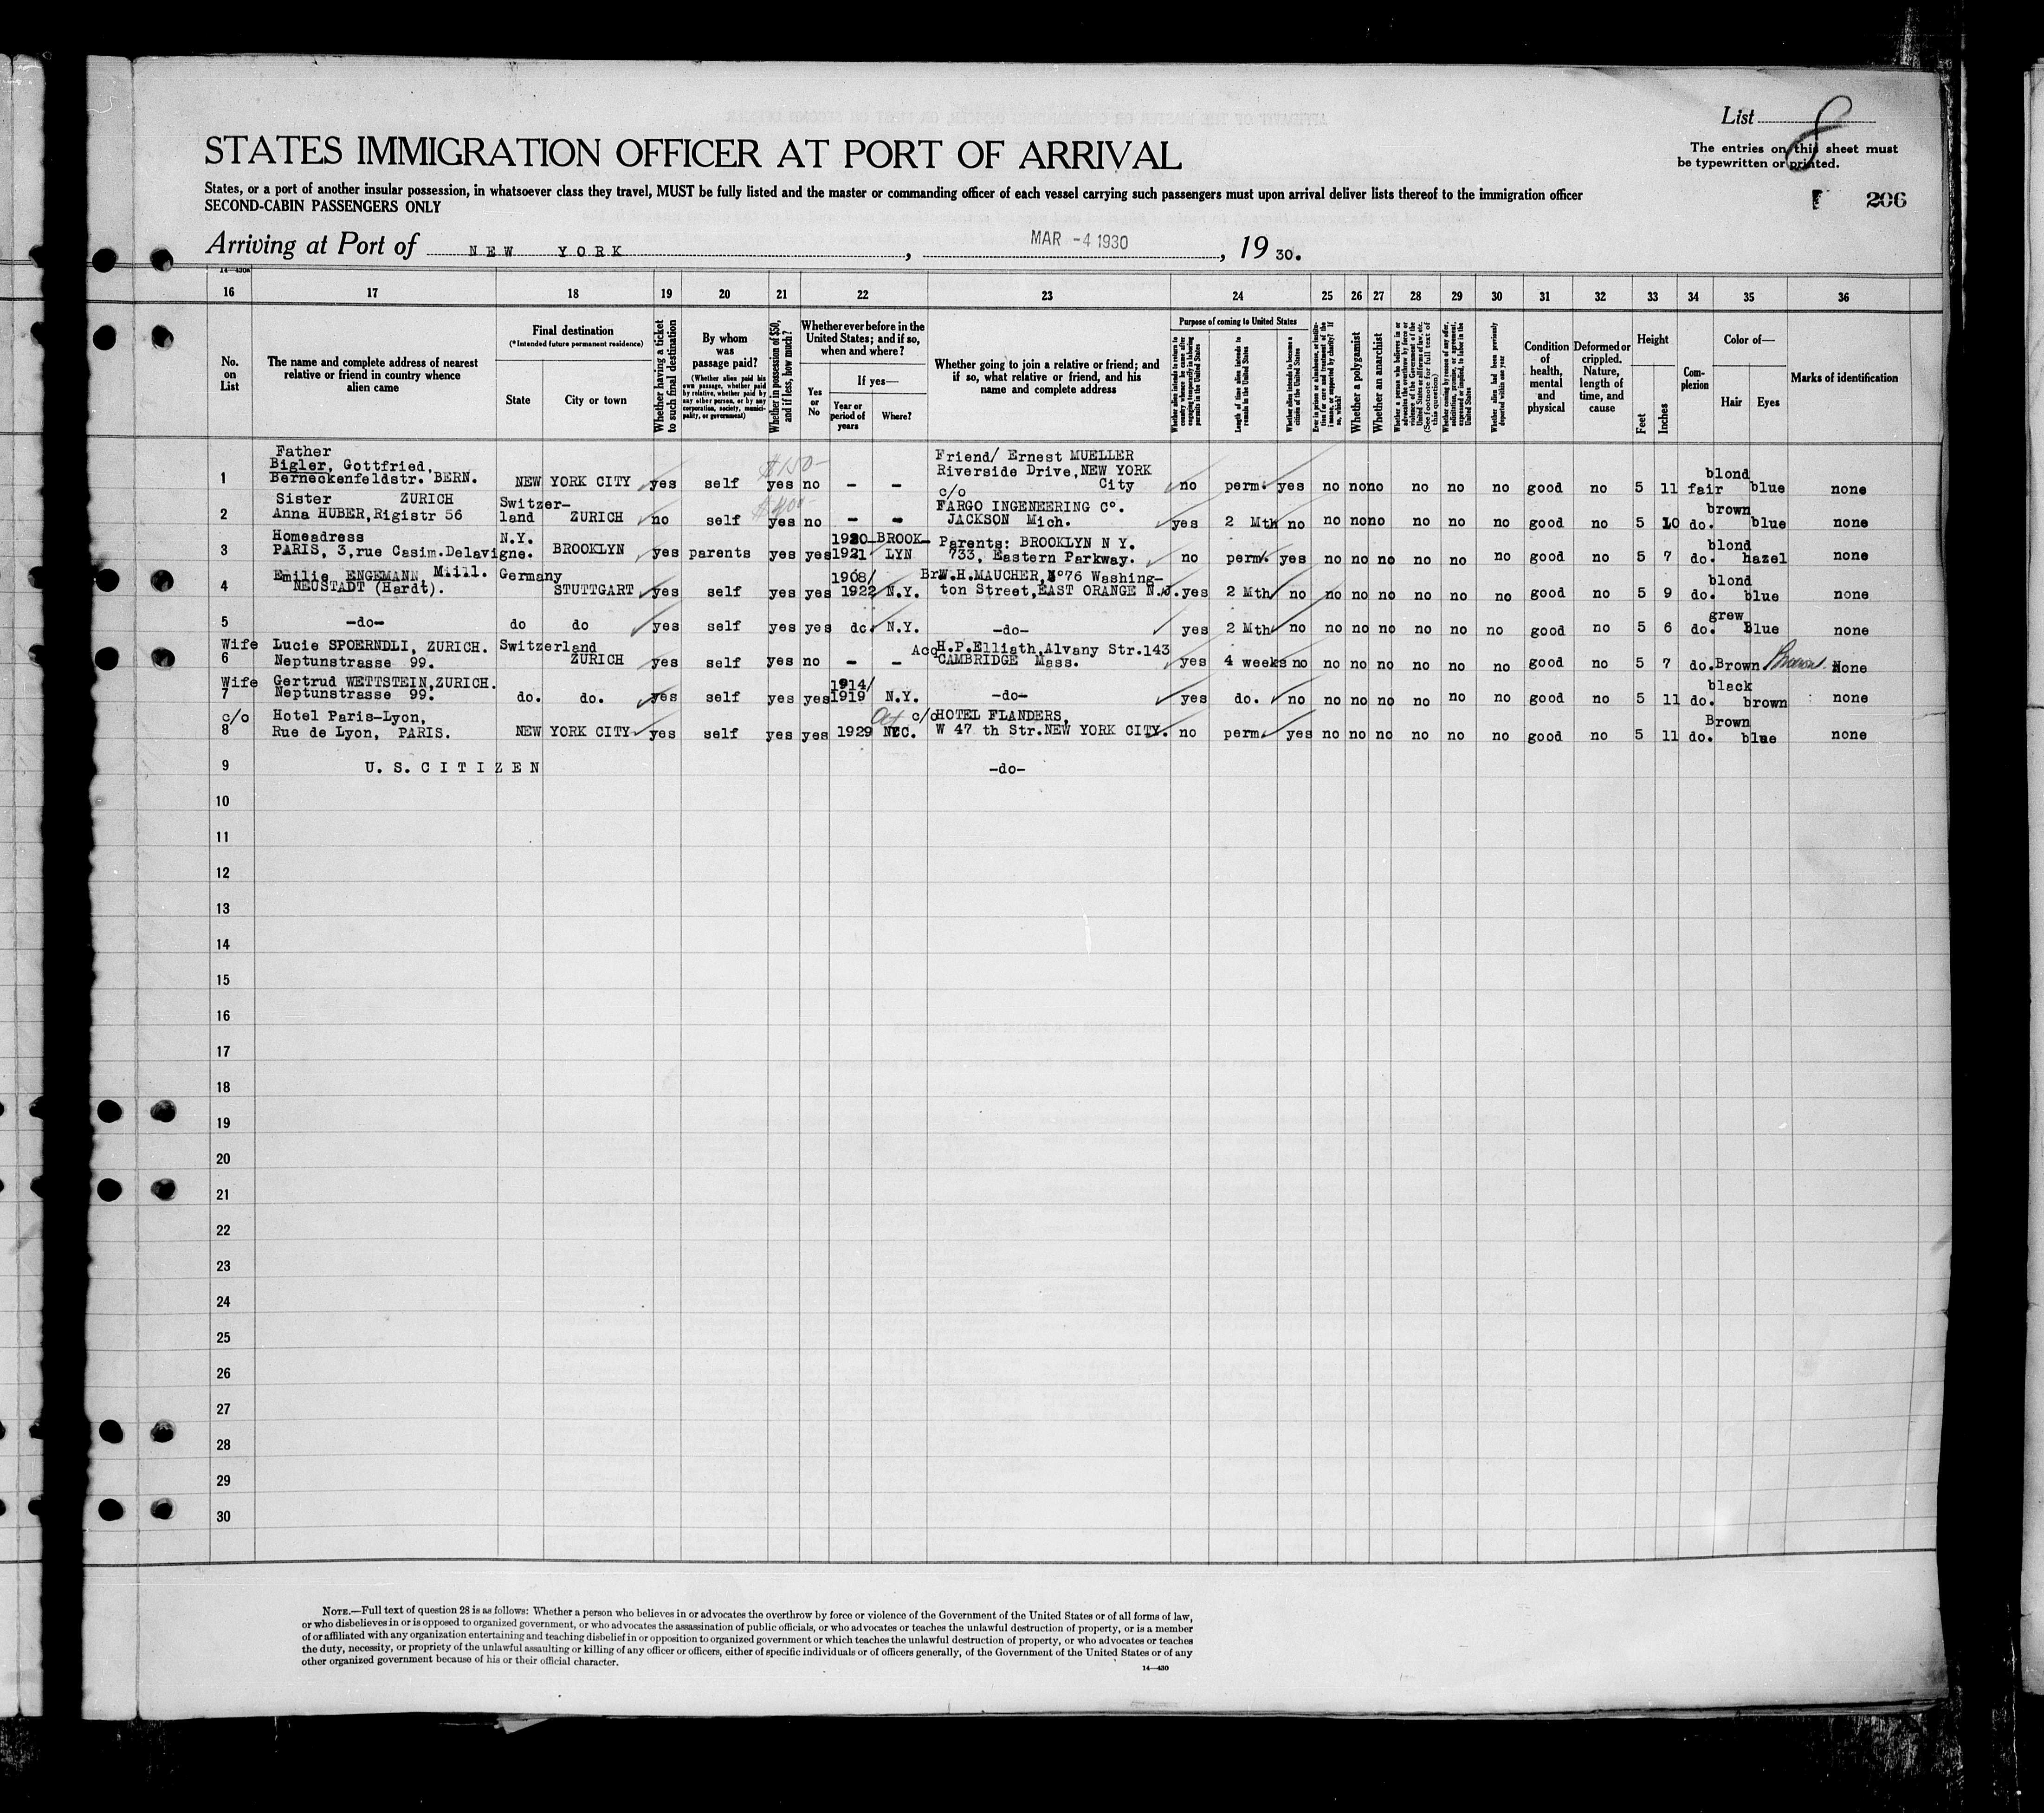 List 8
STATES IMMIGRATION OFFICER AT PORT OF ARRIVAL
The entries on this sheet must
be typewritten or printed.
States, or a port of another insular possession, in whatsoever class they travel, MUST be fully listed and the master or commanding officer of each vessel carrying such passengers must upon arrival deliver lists thereof to the immigration officer
SECOND-CABIN PASSENGERS ONLY
206
Arriving at Port of NEW YORK, MAR -4 1930, 19 30.
14—430a
16 17 18 19 20 21 22 23 24 25 26 27 28 29 30 31 32 33 34 35 36
No. on List
The name and complete address of nearest relative or friend in country whence alien came
Final destination
(*Intended future permanent residence)
State
City or town
Whether having a ticket to such final destination
By whom was passage paid?
(Whether alien paid his own passage, whether paid by relative, whether paid by any other person, or by any corporation, society, municipality, or government)
Whether in possession of $50, and if less, how much?
Whether ever before in the United States; and if so, when and where?
Yes or No
If yes—
Year or period of years
Where?
Whether going to join a relative or friend; and if so, what relative or friend, and his name and complete address
Purpose of coming to United States
Whether alien intends to return to country whence he came after engaging temporarily in laboring pursuits in the United States
Length of time alien intends to remain in the United States
Whether alien intends to become a citizen of the United States
Ever in prison or almshouse, or institution for care and treatment of the insane, or supported by charity? If so, which?
Whether a polygamist
Whether an anarchist
Whether a person who believes in or advocates the overthrow by force or violence of the Government of the United States or all forms of law, etc. (See footnote for full text of this question)
Whether coming by reason of any offer, solicitation, promise, or agreement, expressed or implied, to labor in the United States
Whether alien had been previously deported within one year
Condition of health, mental and physical
Deformed or crippled. Nature, length of time, and cause
Height
Feet
Inches
Complexion
Color of—
Hair
Eyes
Marks of identification
1 Father Bigler, Gottfried, Berneckenfeldstr. BERN. NEW YORK CITY yes self $150- yes no - - Friend/ Ernest MUELLER Riverside Drive, NEW YORK City no perm. yes no no no no no no good no 5 11 fair blond blue none
2 Sister ZURICH Anna HUBER, Rigistr 56 Switzer-land ZURICH no self $400- yes no - - c/o FARGO INGENEERING C°. JACKSON Mich. yes 2 Mth no no no no no no no good no 5 10 do. brown blue none
3 Homeadress PARIS, 3,rue Casim.Delavigne. N.Y. BROOKLYN yes parents yes yes 1920-1921 BROOK-LYN Parents: BROOKLYN N Y. 733, Eastern Parkway. no perm. yes no no no no no no good no 5 7 do. blond hazel none
4 Emilie ENGEMANN Maill. NEUSTADT (Hardt). Germany STUTTGART yes self yes yes 1908/1922 N.Y. Br W.H.MAUCHER, N°76 Washing-ton Street, EAST ORANGE N.J. yes 2 Mth no no no no no no no good no 5 9 do. blond blue none
5 -do- do do yes self yes yes do. N.Y. -do- yes 2 Mth no no no no no no no good no 5 6 do. grew Blue none
6 Wife Lucie SPOERNDLI, ZURICH. Neptunstrasse 99. Switzerland ZURICH yes self yes no - - Acq H.P.Elliath, Alvany Str.143 CAMBRIDGE Mass. yes 4 weeks no no no no no no no good no 5 7 do. Brown Brown None
7 Wife Gertrud WETTSTEIN, ZURICH. Neptunstrasse 99. do. do. yes self yes yes 1914/1919 N.Y. -do- yes do. no no no no no no no good no 5 11 do. black brown none
8 c/o Hotel Paris-Lyon, Rue de Lyon, PARIS. NEW YORK CITY yes self yes yes 1929 NYC. c/o HOTEL FLANDERS, W 47 th Str. NEW YORK CITY. no perm. yes no no no no no no good no 5 11 do. Brown blue none
9 U. S. C I T I Z E N -do-
10
11
12
13
14
15
16
17
18
19
20
21
22
23
24
25
26
27
28
29
30
NOTE.—Full text of question 28 is as follows: Whether a person who believes in or advocates the overthrow by force or violence of the Government of the United States or of all forms of law,
or who disbelieves in or is opposed to organized government, or who advocates the assassination of public officials, or who advocates or teaches the unlawful destruction of property, or is a member
of or affiliated with any organization entertaining and teaching disbelief in or opposition to organized government or which teaches the unlawful destruction of property, or who advocates or teaches
the duty, necessity, or propriety of the unlawful assaulting or killing of any officer or officers, either of specific individuals or of officers generally, of the Government of the United States or of any
other organized government because of his or their official character.
14—430